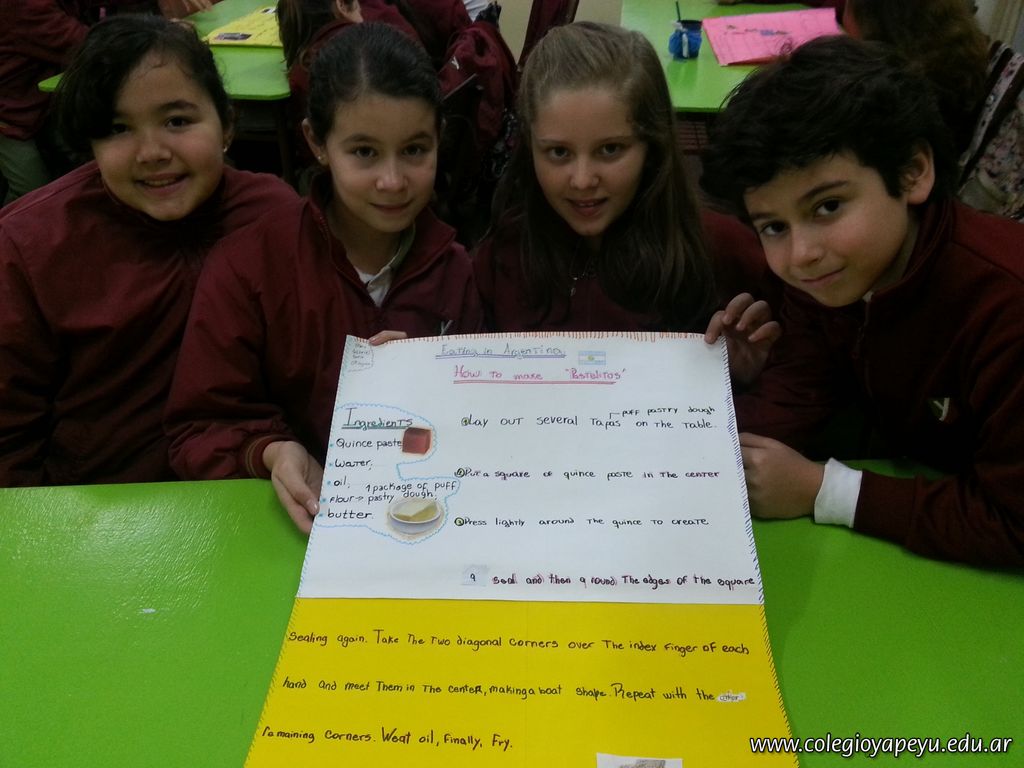 Eating in Argentina
How to make "Pastelitos"
Ingredients
Quince paste
Water,
oil,
1 package of puff
Flour → pastry dough,
butter.
puff pastry dough
Lay out several Tapas on the table.
Put a square of quince paste in the center
Press lightly around the quince to create
a seal and then a round the edges of the square
sealing again. Take the two diagonal corners over the index finger of each
hand and meet them in the center, making a boat shape. Repeat with the other
remaining corners. Weat oil, Finally, Fry.
www.colegioyapeyu.edu.ar